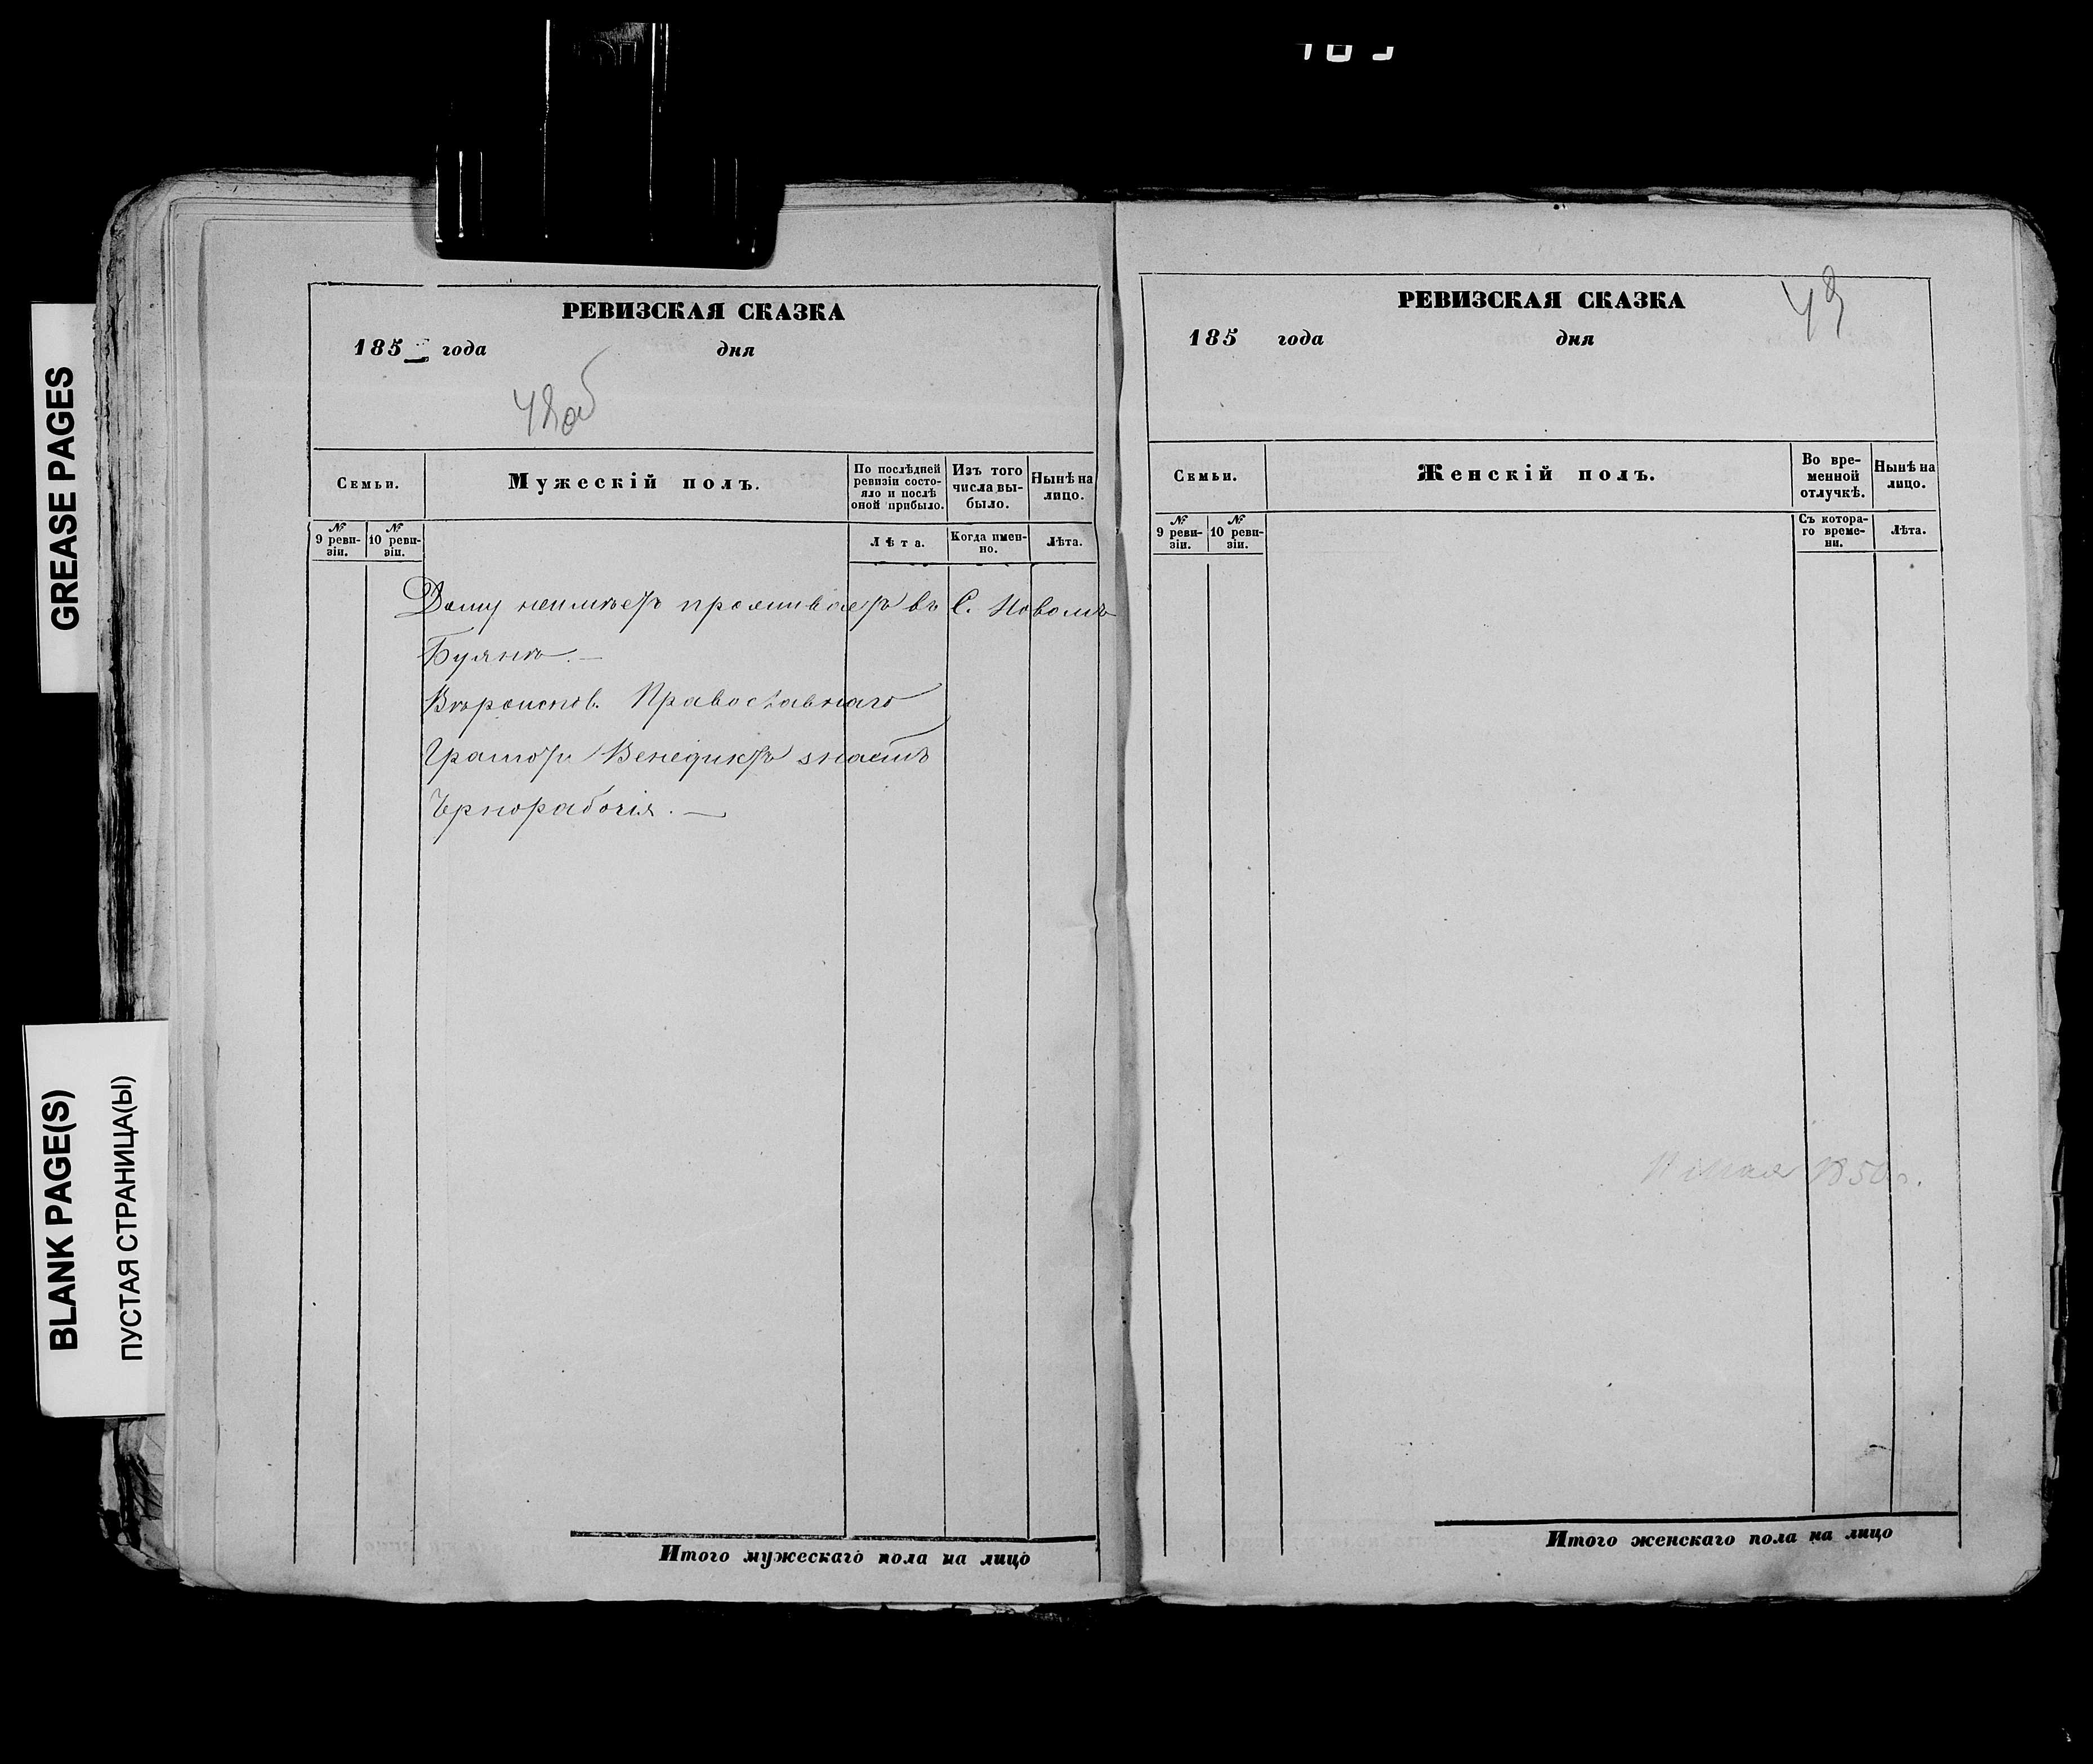 GREASE PAGES
BLANK PAGE(S)
ПУСТАЯ СТРАНИЦА(Ы)
РЕВИЗСКАЯ СКАЗКА
185 года дня
48об
Семьи.
Мужескій полъ.
По послѣдней ревизіи состо-
яло и послѣ
оной прибыло.
Изъ того
числа вы-
было.
Нынѣ на
лицо.
№
9 реви-
зіи.
№
10 реви-
зіи.
Лѣта.
Когда имен-
но.
Лѣта.
Дому неимѣетъ проживаетъ въ С. Новомъ
Буянѣ. —
Вѣроисков. Православнаго
Грамотѣ Венедиктъ знаетъ
Чернорабочія. —
Итого мужескаго пола на лицо
РЕВИЗСКАЯ СКАЗКА
49
185 года дня
Семьи.
Женскій полъ.
Во вре-
менной
отлучкѣ.
Нынѣ на
лицо.
№
9 реви-
зіи.
№
10 реви-
зіи.
Съ котора-
го време-
ни.
Лѣта.
Итого женскаго пола на лицо